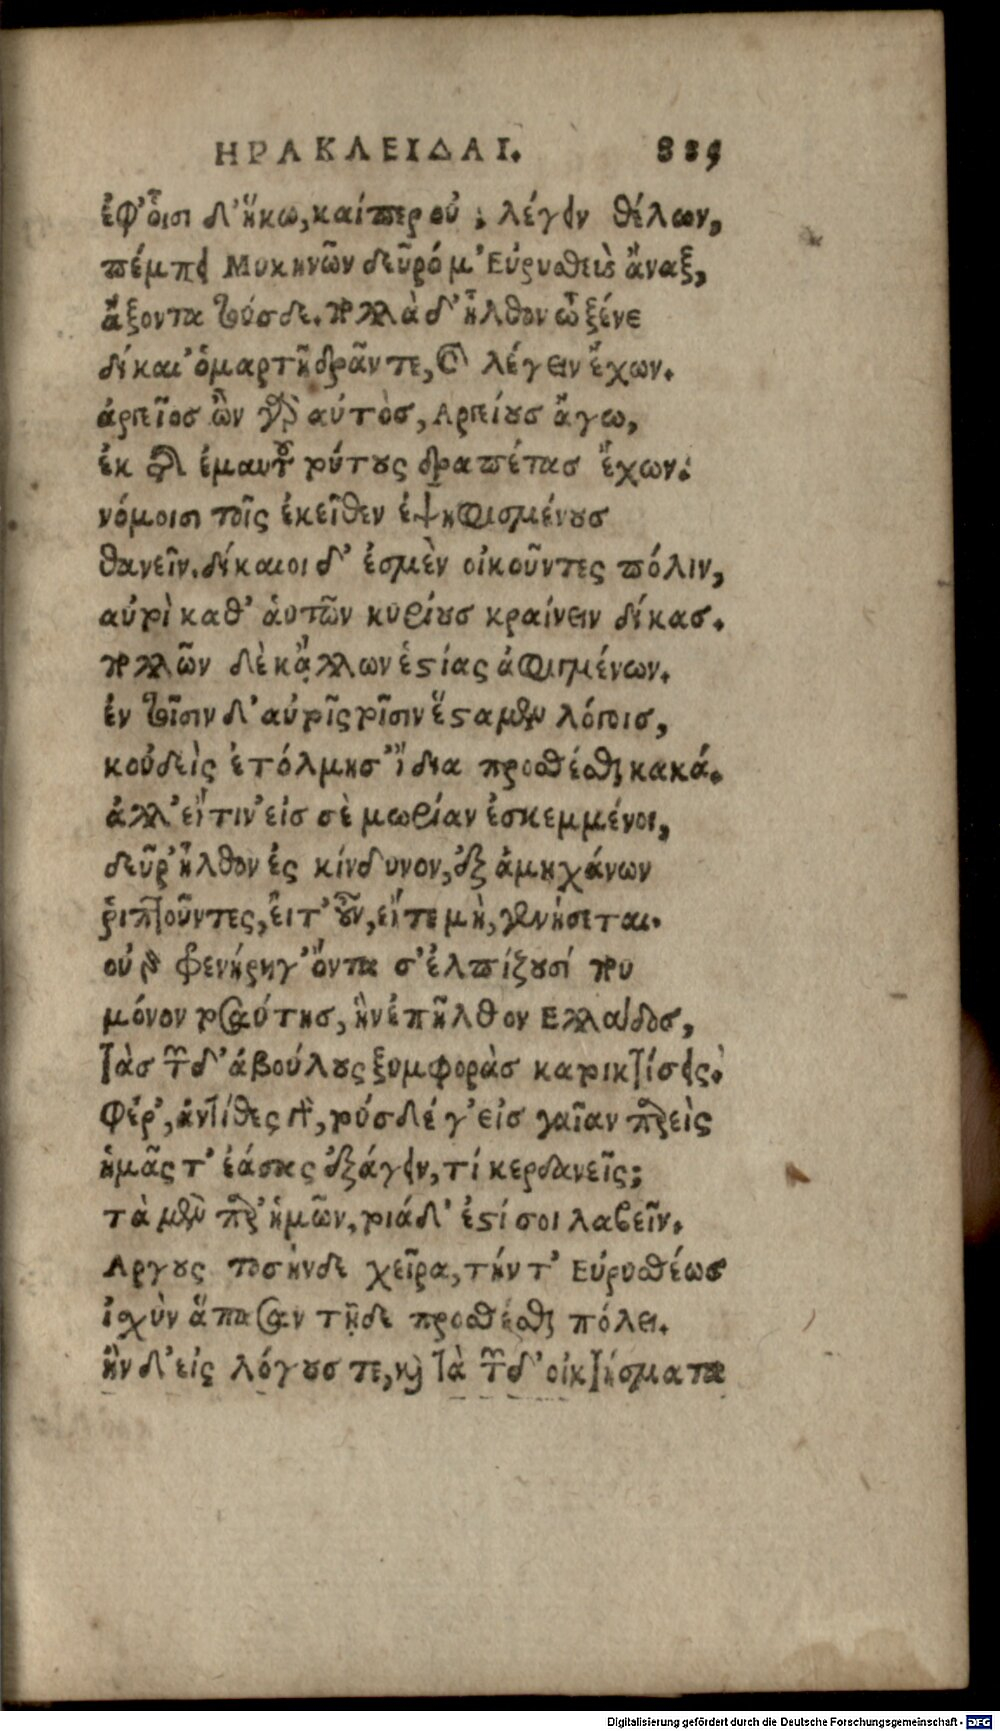 ΗΡΑΚΛΕΙΔΑΙ. 335
ἐφ' οἷσι δ' ἥκω, καίπερ οὐ; λέγειν θέλων,
πέμπει Μυκηνῶν δεῦρό μ' Εὐρυσθεὺς ἄναξ,
ἄξοντα τούσδε. πολλὰ δ' ἦλθον ὦ ξένε
δίκαι' ὁμαρτῇ δρᾶν τε, καὶ λέγειν ἔχων.
ἀργεῖος ὢν γὰρ αὐτὸς, Αργείους ἄγω,
ἐκ τῆς ἐμαυτοῦ τούτους δραπέτας ἔχων.
νόμοισι τοῖς ἐκεῖθεν ἐψηφισμένους
θανεῖν. δίκαιοι δ' ἐσμὲν οἰκοῦντες πόλιν,
αὐτοὶ καθ' αὑτῶν κυρίους κραίνειν δίκας.
πολλῶν δὲ κᾄλλων ἑστίας ἀφιγμένων.
ἐν τοῖσιν δ' αὐτοῖς τοῖσιν ἕσταμεν λόγοις,
κοὐδεὶς ἐτόλμησ' ἴδια προσθέσθαι κακά.
ἀλλ' εἴ τιν' εἰς σὲ μωρίαν ἐσκεμμένοι,
δεῦρ' ἦλθον ἐς κίνδυνον, ἐξ ἀμηχάνων
ῥιπτοῦντες, εἴτ' οὖν, εἴτε μὴ, γενήσεται.
οὐ γὰρ φρενήρη γ' ὄντα σ' ἐλπίζουσί που
μόνον τοσαύτης, ἣν ἐπῆλθον Ελλάδος,
τὰς τῶνδ' ἀβούλους ξυμφορὰς κατοικτίσειν.
Φέρ', ἀντίθες γὰρ, τούσδέ γ' εἰς γαῖαν παρεὶς
ἡμᾶς τ' ἐάσῃς ἐξάγειν, τί κερδανεῖς;
τὰ μὲν παρ' ἡμῶν, τοιάδ' ἐστί σοι λαβεῖν.
Αργους τοσήνδε χεῖρα, τήν τ' Εὐρυσθέως
ἰσχὺν ἅπασαν τῇδε προσθέσθαι πόλει.
ἢν δ' εἰς λόγους τε, καὶ τὰ τῶνδ' οἰκτίσματα
Digitalisierung gefördert durch die Deutsche Forschungsgemeinschaft - DFG